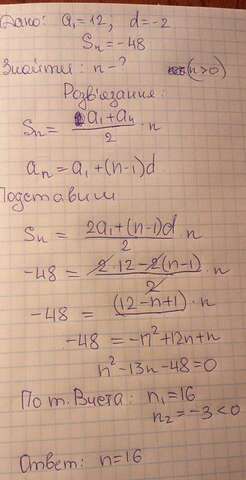 Дано: a₁=12; d=-2
Sₙ=-48
Знайти: n-? (n>0)
Розв'язання:
Sₙ = (a₁+aₙ)/2 · n
aₙ = a₁+(n-1)d
Подставим
Sₙ = (2a₁+(n-1)d)/2 n
-48 = (2·12-2(n-1))/2 · n
-48 = (12-n+1) · n
-48 = -n²+12n+n
n²-13n-48=0
По т. Виета: n₁=16
n₂=-3<0
Ответ: n=16